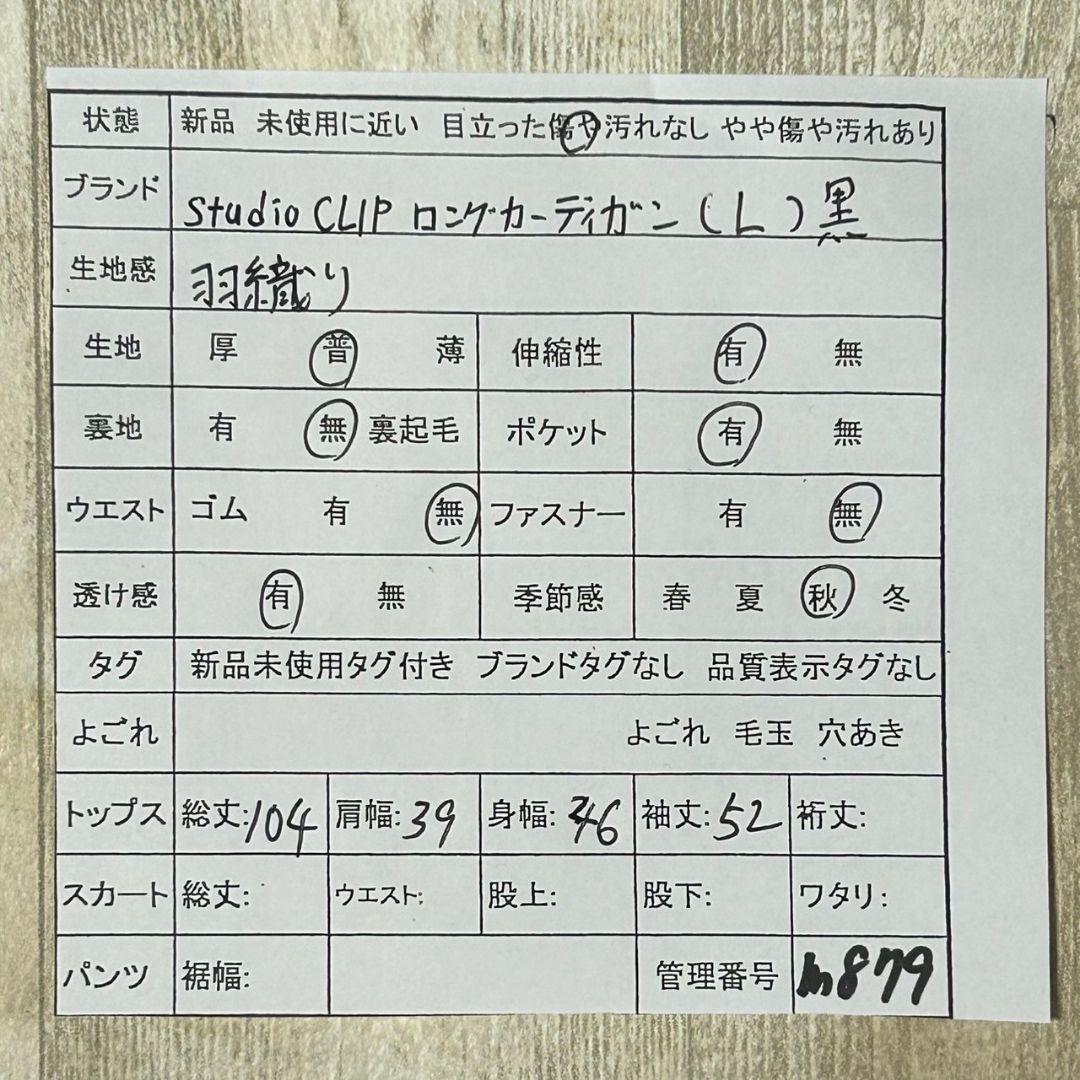 状態 新品 未使用に近い 目立った傷や汚れなし やや傷や汚れあり
ブランド studio CLIP ロングカーディガン (L) 黒
生地感 羽織り
生地 厚 普 薄 伸縮性 有 無
裏地 有 無 裏起毛 ポケット 有 無
ウエスト ゴム 有 無 ファスナー 有 無
透け感 有 無 季節感 春 夏 秋 冬
タグ 新品未使用タグ付き ブランドタグなし 品質表示タグなし
よごれ よごれ 毛玉 穴あき
トップス 総丈:104 肩幅:39 身幅:46 袖丈:52 裄丈:
スカート 総丈: ウエスト: 股上: 股下: ワタリ:
パンツ 裾幅: 管理番号 m879